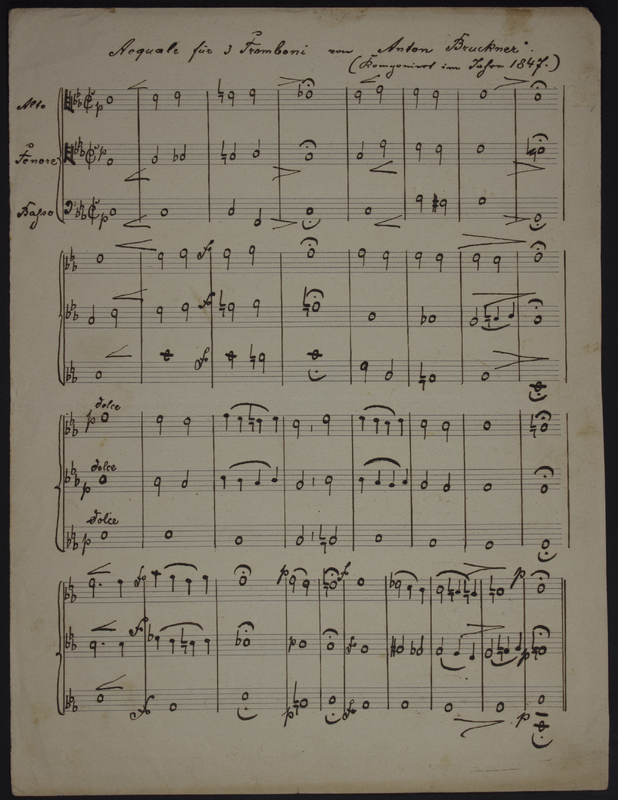 Aequale für 3 Tromboni von Anton Bruckner.
(Komponirt im Jahre 1847.)
Alto
p
Tenore
p
Basso
p
f
f
f
dolce
p
dolce
p
dolce
p
f p f p
f p f p
f p f p